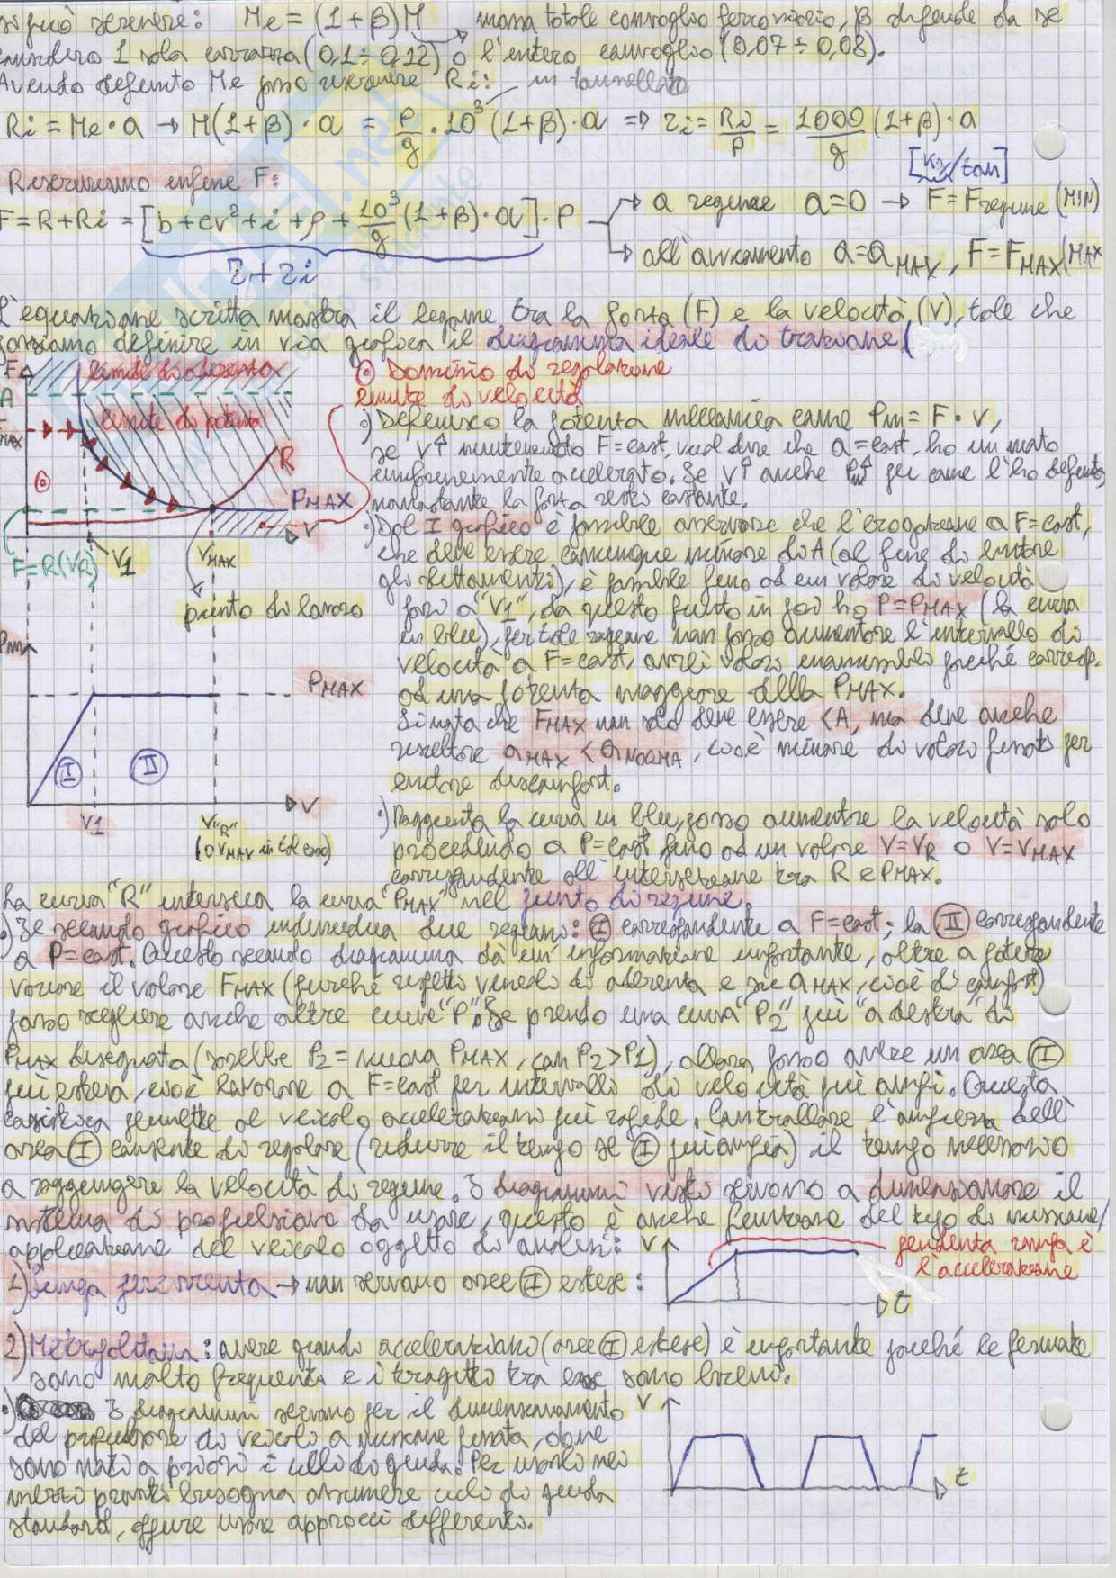 si può scrivere: Me = (1+β)M → massa totale convoglio ferroviario, β dipende da se
considero 1 sola carrozza (0,1 ÷ 0,12) o l'intero convoglio (0,07 ÷ 0,08).
Avendo definito Me posso scrivere Ri: in tonnellate
Ri = Me · a → M(1+β) · a = P/g · 10³ (1+β) · a ⇒ ri = Ri/P = 1000/g (1+β) · a
[kg/ton]
Riscriviamo infine F:
F = R + Ri = [b + cv² + i + ρ + 10³/g (1+β) · a] · P → a regime a=0 → F = Fregime (MIN)
r + ri → all'avviamento a = aMAX, F = FMAX (MAX
L'equazione scritta mostra il legame tra la forza (F) e la velocità (V), tale che
possiamo definire in via grafica il diagramma ideale di trazione (
F limite di aderenza
A
MAX limite di potenza
R
PMAX
V
F=R(VR) V1 VMAX
punto di lavoro
⊙ Dominio di regolazione
limite di velocità
·) Definisco la potenza meccanica come Pm = F · v,
se V↑ mantenendo F=cost, vuol dire che a=cost, ho un moto
uniformemente accelerato. Se V↑ anche Pm↑ per come l'ho definita,
nonostante la forza resti costante.
·) Dal I grafico è possibile osservare che l'erogazione a F=cost,
che deve essere comunque minore di A (al fine di evitare
gli slittamenti), è possibile fino ad un valore di velocità
pari a "V1", da questo punto in poi ho P=PMAX (la curva
in blu), per tale ragione non posso aumentare l'intervallo di
velocità a F=cost, avrei valori inammissibili perché corrisp.
ad una potenza maggiore della PMAX.
Si nota che FMAX non solo deve essere < A, ma deve anche
rispettare aMAX < aNORMA, cioè minore di valori fissati per
evitare discomfort.
·) Raggiunta la curva in blu, posso aumentare la velocità solo
procedendo a P=cost fino ad un valore V=VR o V=VMAX
corrispondente all'intersezione tra R e PMAX.
Pm
PMAX
I II
V
V1 V"R"
(o VMAX in tal caso)
La curva "R" interseca la curva "PMAX" nel punto di regime.
·) Se secondo grafico individua due regioni: I corrispondente a F=cost; la II corrispondente
a P=cost. Questo secondo diagramma dà un'informazione importante, oltre a poter
variare il valore FMAX (purché rispetti vincolo di aderenza e su aMAX, cioè di comfort)
posso scegliere anche altre curve "P". Se prendo una curva "P2" più "a destra" di
PMAX disegnata (sarebbe P2 = nuova PMAX, con P2 > P1), allora posso avere un'area I
più estesa, cioè lavorare a F=cost per intervalli di velocità più ampi. Questa
casistica permette al veicolo accelerazioni più rapide. Controllare l'ampiezza dell'
area I consente di regolare (ridurre il tempo se I più ampia) il tempo necessario
a raggiungere la velocità di regime. I diagrammi visti servono a dimensionare il
sistema di propulsione da usare, questo è anche funzione del tipo di missione/
applicazione del veicolo oggetto di analisi: V pendenza rampa è
l'accelerazione
1) Lunga percorrenza → non servono aree I estese: t
2) Metropolitana: avere grandi accelerazioni (aree I estese) è importante poiché le fermate
sono molto frequenti e i tragitti tra esse sono brevi.
·) I diagrammi servono per il dimensionamento V
del propulsore di veicoli a missione fissata, dove
sono noti a priori i cicli di guida. Per usarli nei
mezzi privati bisogna assumere cicli di guida t
standard, oppure usare approcci differenti.